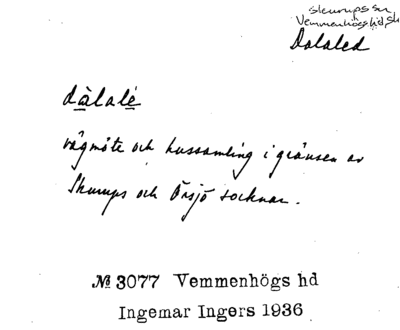 Skurups sn
Vemmenhögs hd, Sk
Dalaled
dàlalé
vägmöte och hussamling i gränsen av
Skurups och Örsjö socknar.
№ 3077 Vemmenhögs hd
Ingemar Ingers 1936